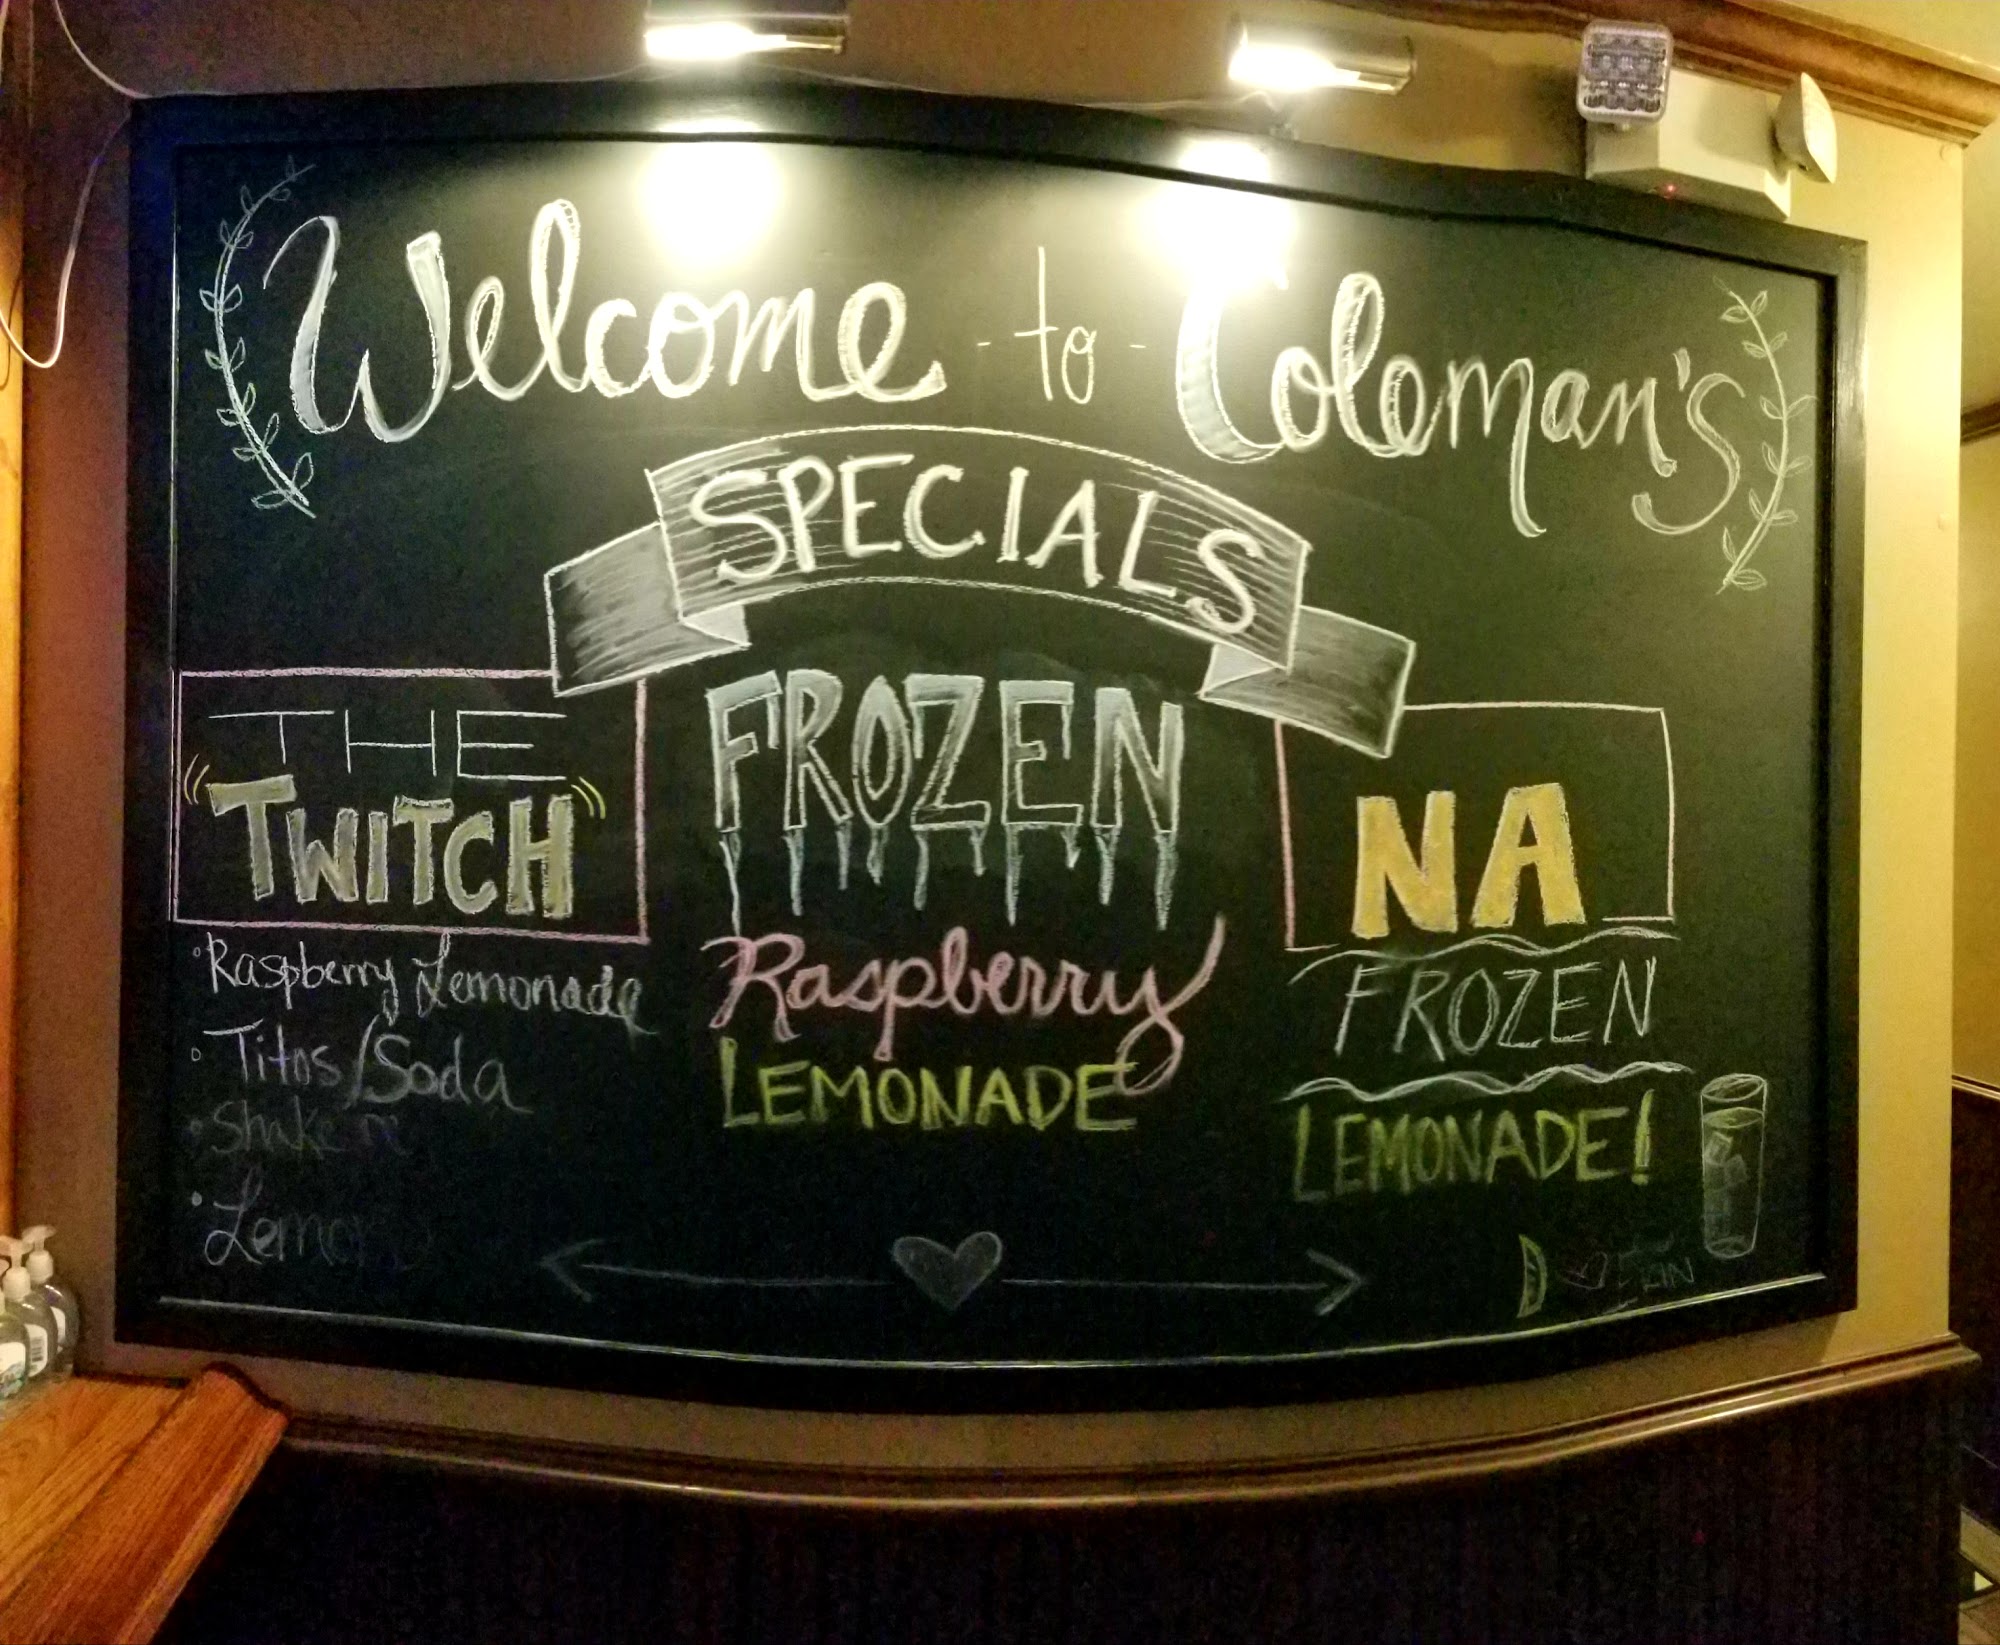 Welcome - to - Coleman's
SPECIALS
THE
TWITCH
Raspberry Lemonade
Titos/Soda
Lemon
FROZEN
Raspberry
LEMONADE
NA
FROZEN
LEMONADE!